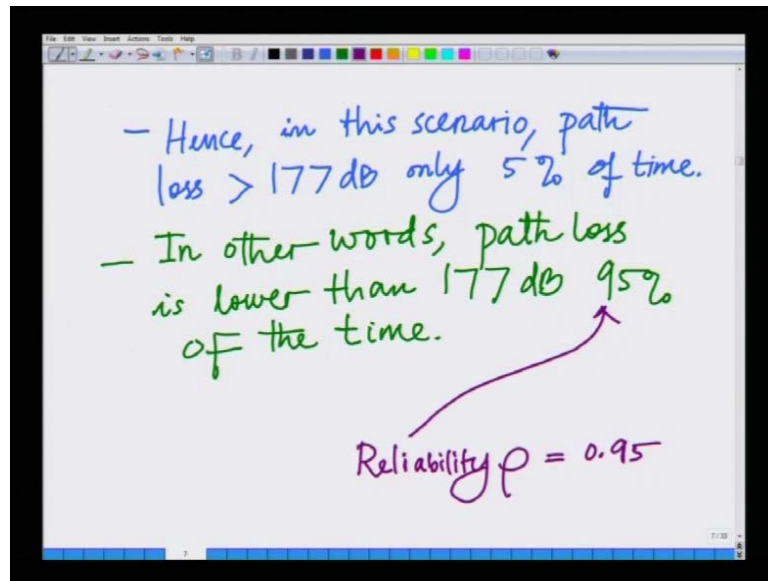 File Edit View Insert Actions Tools Help
- Hence, in this scenario, path
loss > 177 dB only 5% of time.
- In other words, path loss
is lower than 177 dB 95%
of the time.
Reliability ρ = 0.95
7/33
7